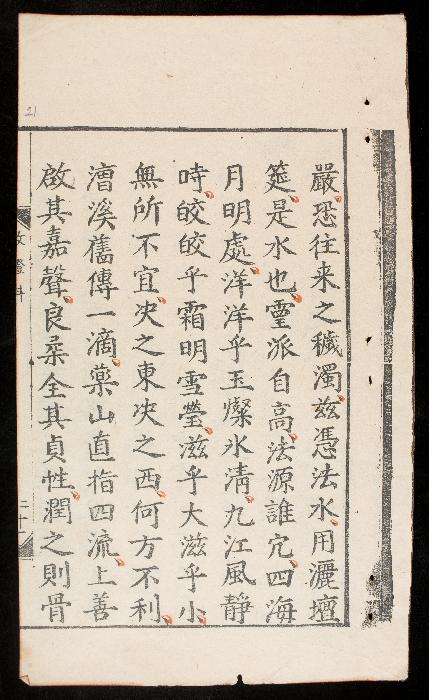 嚴恐往来之穢濁兹憑法水用灑壇
筵是水也靈派自高法源誰宂四海
月明處洋洋乎玉燦氷清九江風靜
時皎皎乎霜明雪瑩滋乎大滋乎小
無所不宜决之東决之西何方不利
漕溪舊傳一滴藥山直指四流上善
啟其嘉聲良桑全其貞性潤之則骨
二十一
21